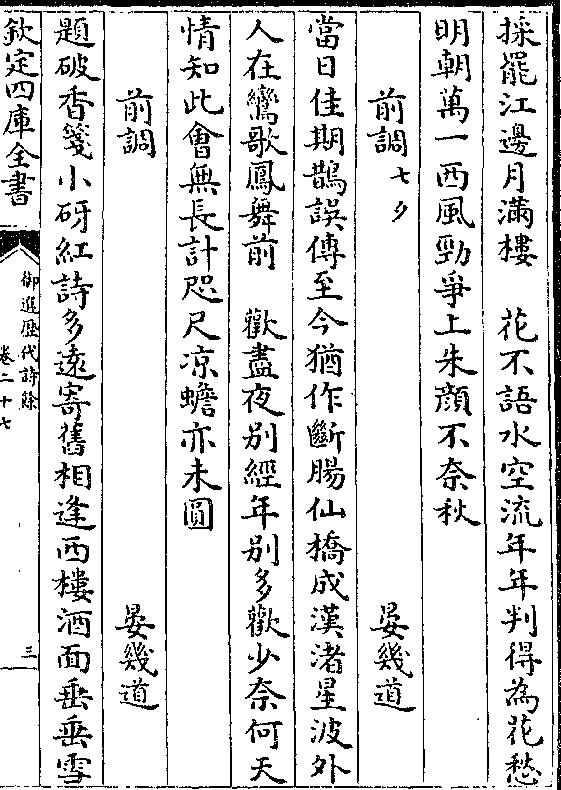 採罷江邊月滿樓　花不語水空流年年判得為花愁
明朝萬一西風勁爭上朱顔不奈秋
前調七夕　晏幾道
當日佳期鵲誤傳至今猶作斷腸仙橋成漢渚星波外
人在鸞歌鳳舞前　歡盡夜别經年别多歡少奈何天
情知此會無長計咫尺凉蟾亦未圓
前調　晏幾道
題破香箋小砑紅詩多遠寄舊相逢西樓酒面垂垂雪
欽定四庫全書
御選歷代詩餘
卷二十七
三